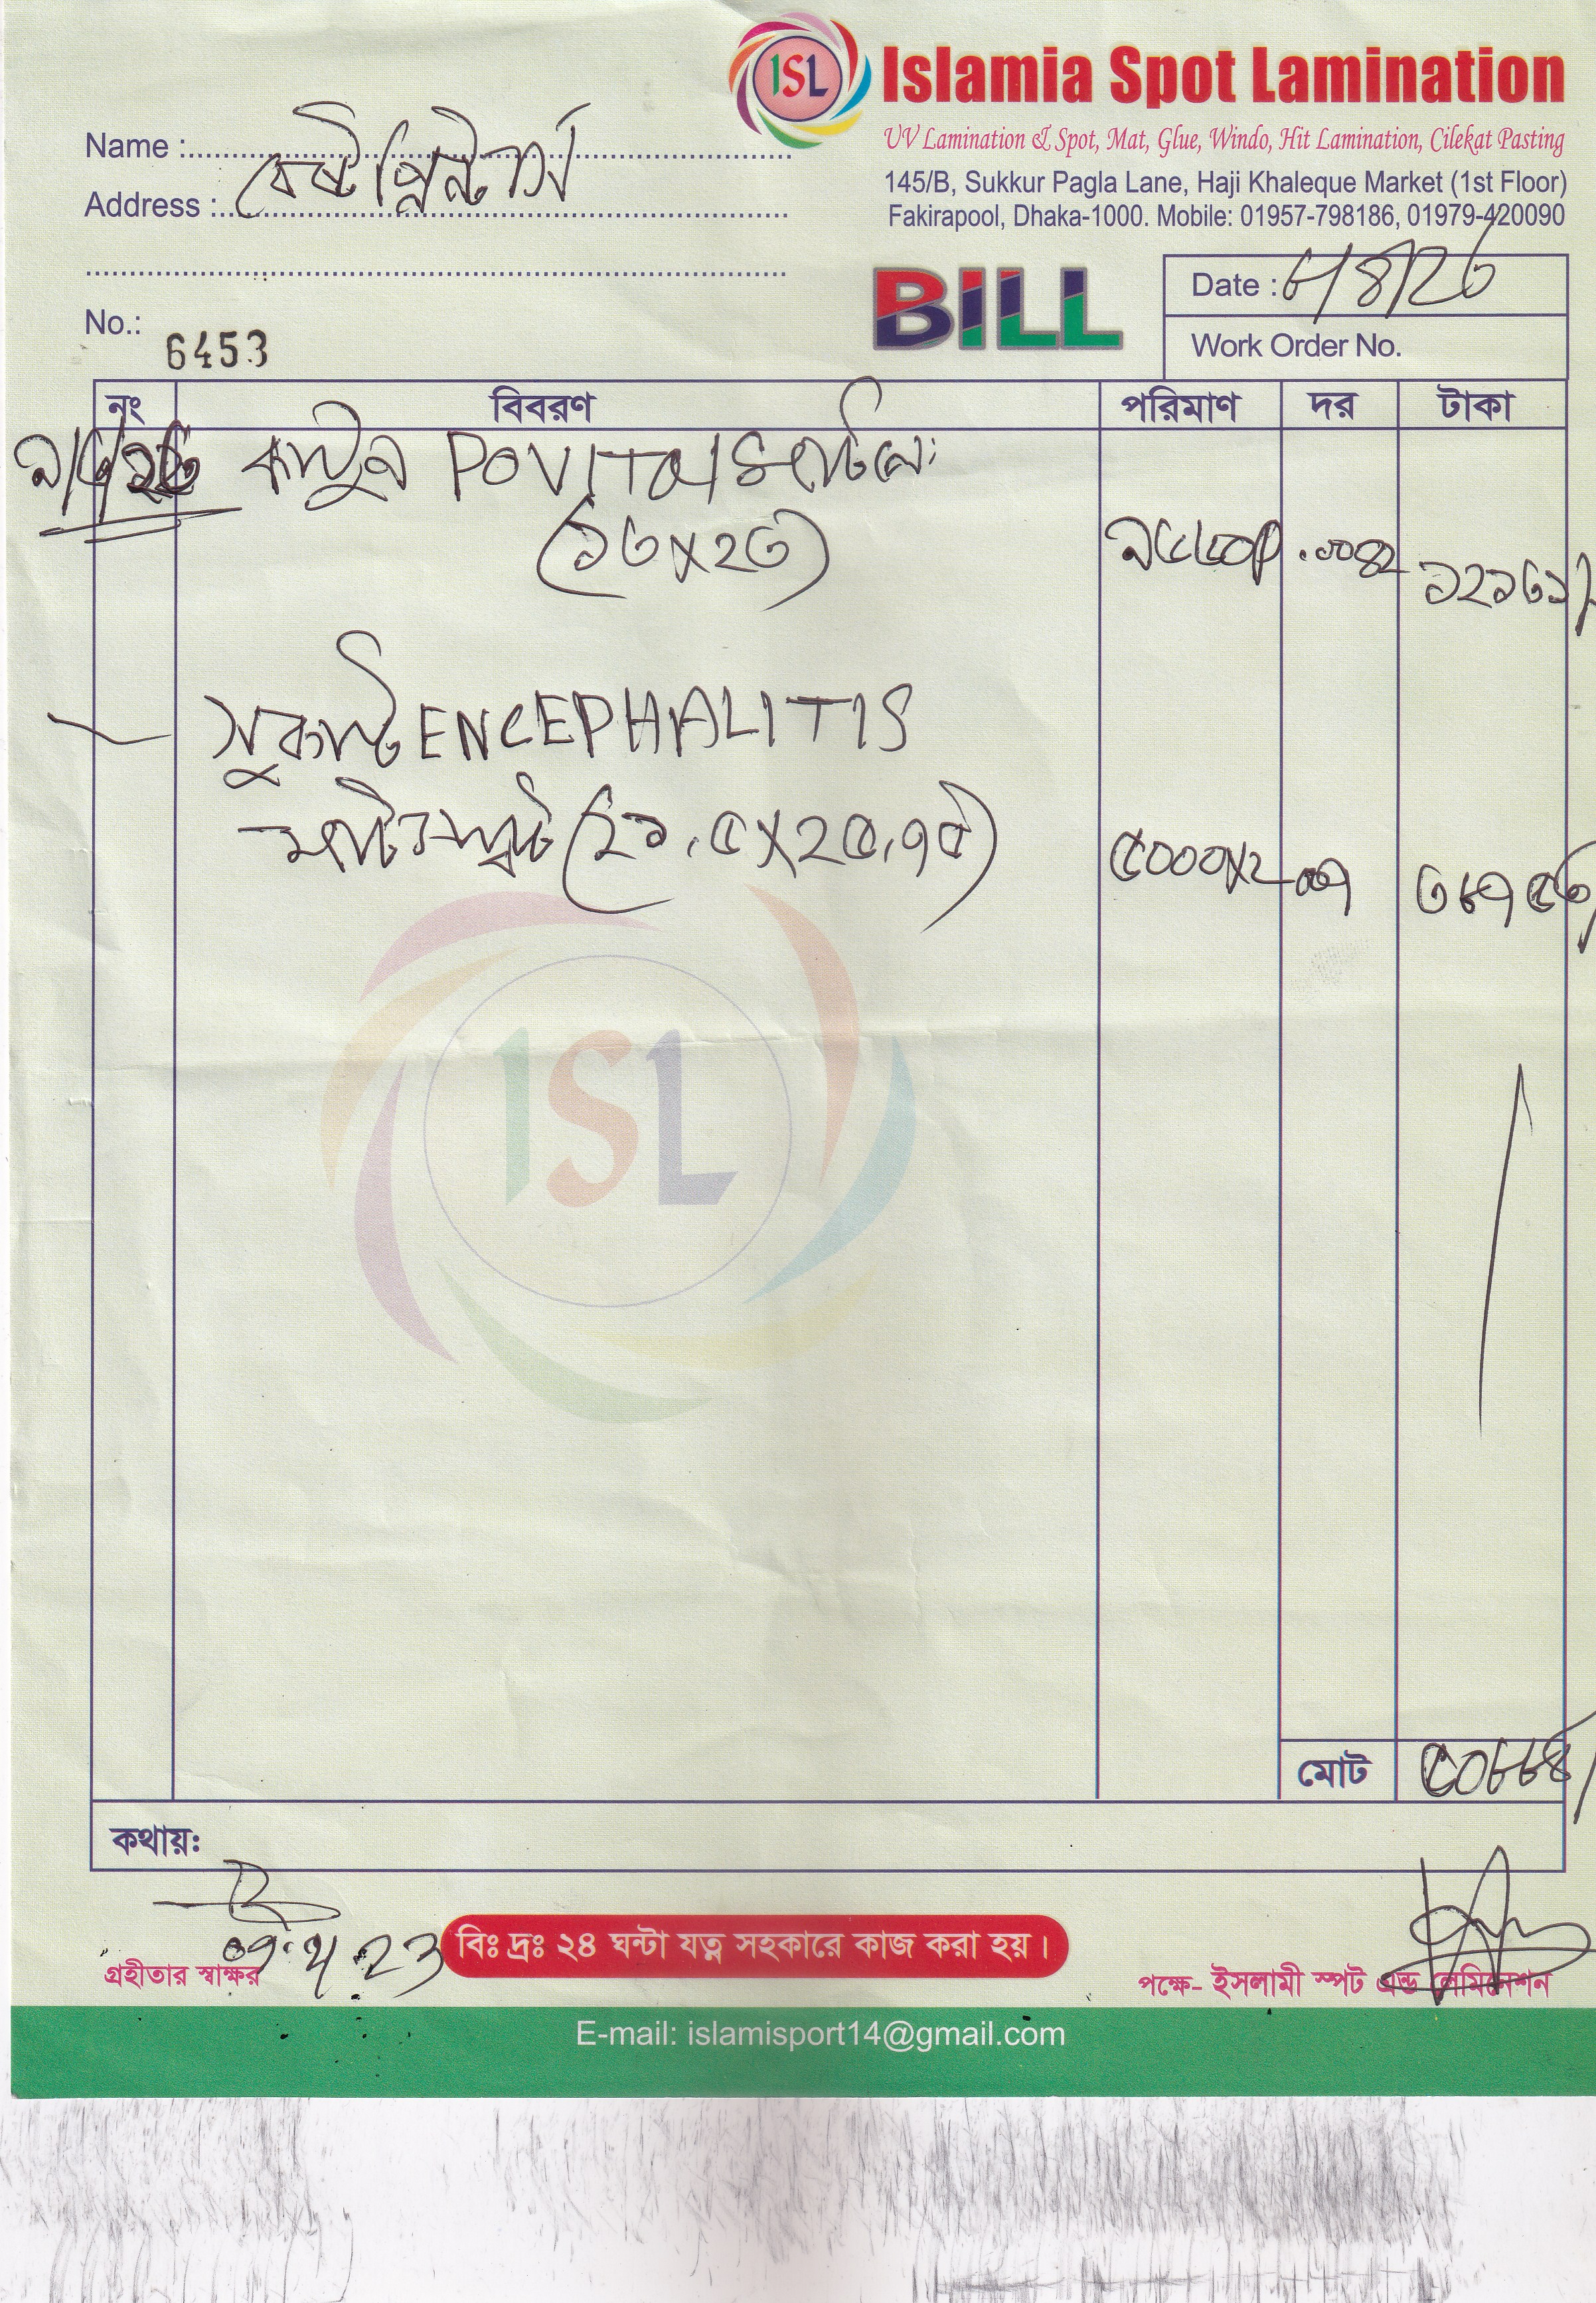 ISL
Islamia Spot Lamination
UV Lamination & Spot, Mat, Glue, Windo, Hit Lamination, Cilekat Pasting
145/B, Sukkur Pagla Lane, Haji Khaleque Market (1st Floor)
Fakirapool, Dhaka-1000. Mobile: 01957-798186, 01979-420090
Name : বেষ্ট প্রিন্টার্স
Address :
No.: 6453
BILL
Date : ৮/৪/২৩
Work Order No.
নং বিবরণ পরিমাণ দর টাকা
কার্টুন POVITAL
(১৩X২৩) .০০৪২ ১২১৩১/
ENCEPHALITIS
(২১.৫X২৫.৭৫) ৫০০০X২ ০০৭ ৩৮৭৫৩/
ISL
মোট ৫০৮৮৪/
কথায়ঃ
গ্রহীতার স্বাক্ষর
বিঃ দ্রঃ ২৪ ঘন্টা যত্ন সহকারে কাজ করা হয়।
পক্ষে- ইসলামী স্পট এন্ড লেমিনেশন
E-mail: islamisport14@gmail.com